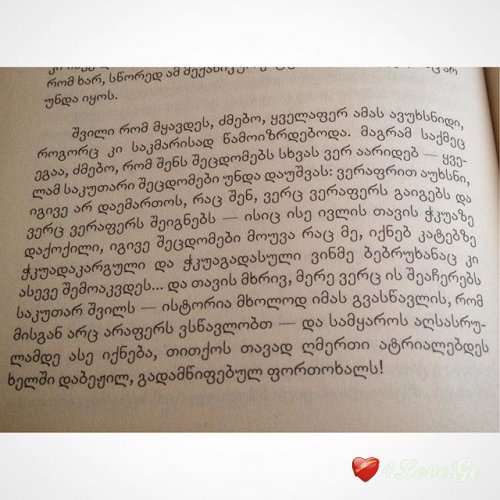 რომ ხარ, სწორედ ამ
უნდა იყოს.
შვილი რომ მყავდეს, ძმებო, ყველაფერ ამას ავუხსნიდი,
როგორც კი საკმარისად წამოიზრდებოდა. მაგრამ საქმეც
ეგაა, ძმებო, რომ შენს შეცდომებს სხვას ვერ აარიდებ — ყვე-
ლამ საკუთარი შეცდომები უნდა დაუშვას: ვერაფრით აუხსნი,
იგივე არ დაემართოს, რაც შენ, ვერც ვერაფერს გაიგებს და
ვერც ვერაფერს შეიგნებს — ისიც ისე ივლის თავის ჭკუაზე
დაქოქილი, იგივე შეცდომები მოუვა რაც მე, იქნებ კატებზე
ჭკუადაკარგული და ჭკუაგადასული ვინმე ბებრუხანაც კი
ასევე შემოაკვდეს... და თავის მხრივ, მერე ვერც ის შეაჩერებს
საკუთარ შვილს — ისტორია მხოლოდ იმას გვასწავლის, რომ
მისგან არც არაფერს ვსწავლობთ — და სამყაროს აღსასრუ-
ლამდე ასე იქნება, თითქოს თავად ღმერთი ატრიალებდეს
ხელში დაბეჟილ, გადამწიფებულ ფორთოხალს!
4Love.Ge